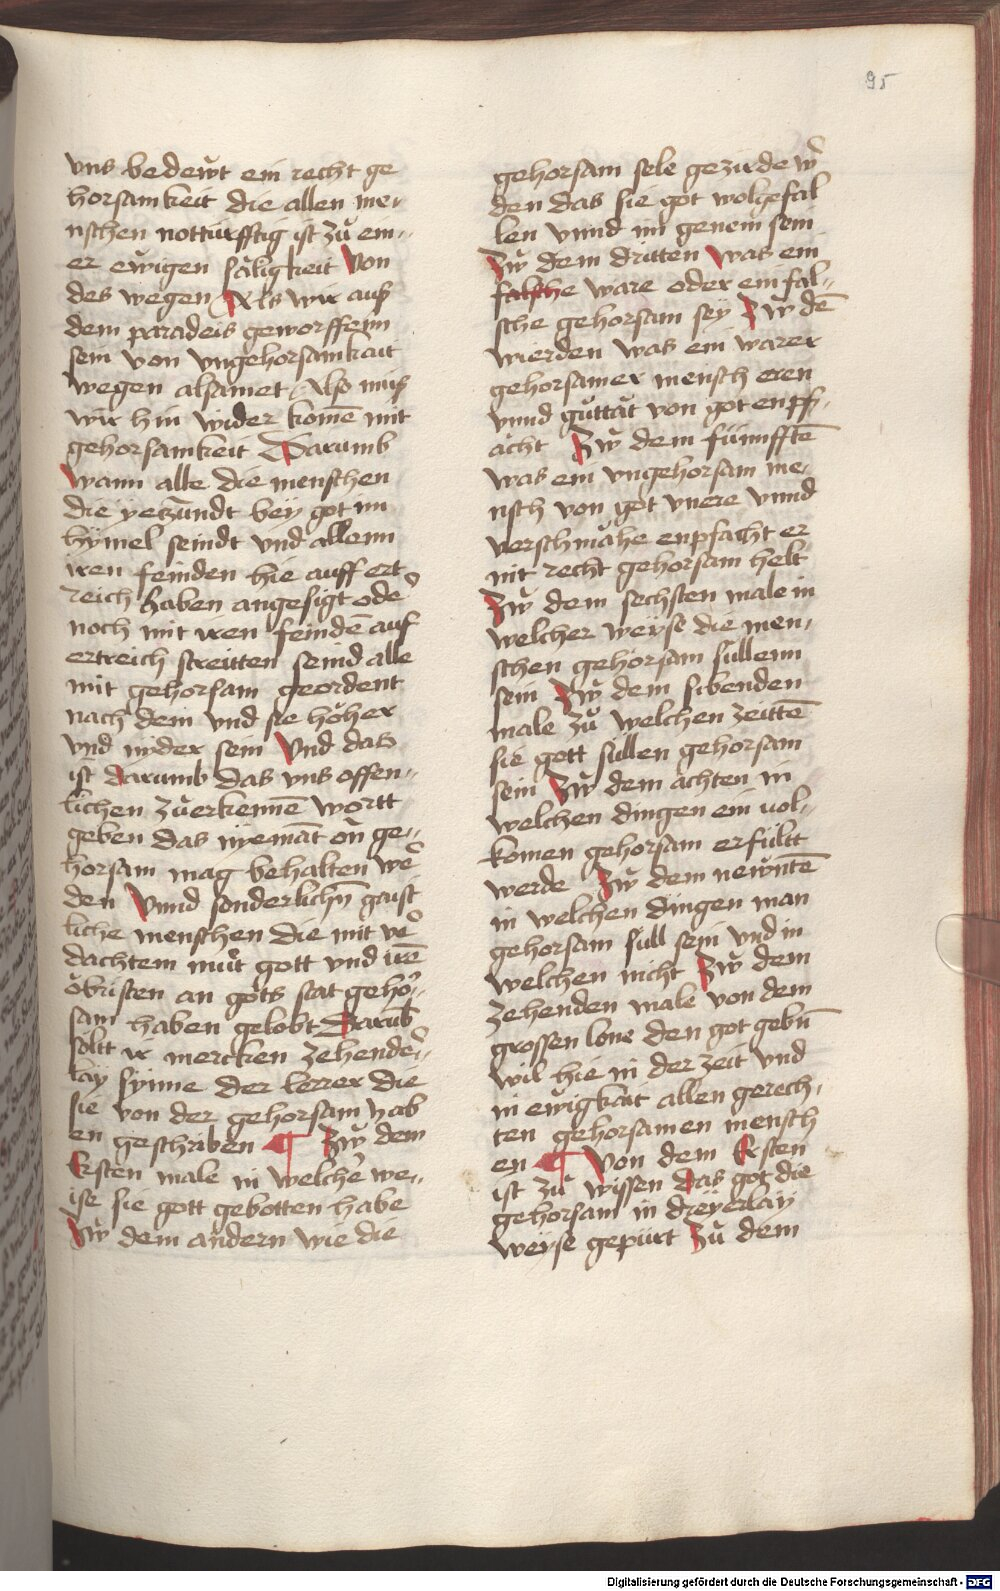 95
vns bedewt ein recht ge
horsamkeit die allen me-
nschen notturfftig ist zů ein-
er ewigen säligkeit Von
des wegen Als wir auß
dem paradeis geworffenn
sein von vngehorsamkait
wegen alsamet Also müß
wir hin wider komē mit
gehorsamkeit Darumb
wann alle die menschen
die yetzundt bey got im
hymel seindt vnd allenn
iren feinden hie auff ert
reich haben angesigt ode᷑
noch mit iren feindē auf
ertreich streitten seind alle
mit gehorsam geordent
nach dem vnd sie höher
vnd nyder sein Vnd das
ist darumb das vns offen-
lichen zůerkennē wortt
geben das nyemāt on ge-
horsam mag behalten we᷑
den Vnnd sonderlichn̄ gaist
liche menschen die mit ve᷑
dachtem můt gott vnd irē
öbristen an gots stat geho᷑-
sam haben gelobt Darūb
söltt ir mercken zehende᷑-
lay synne der lerrer die
sie von der gehorsam hab
en geschriben ¶ Zẘ dem
Ersten male in welche᷑ we-
ise sie gott gebotten habe
Zẘ dem andern wie die
gehorsam sele gezirde w᷑
den das sie got wolgefal
len vnnd im genem sein
Zẘ dem dritten was ein
falsche ware oder ein fal-
sche gehorsam sey Zẘ dē
wierden was ein warer
gehorsamer mensch eren
vnnd gůttät von got enpf-
ächt Zẘ dem fünnfftē
was ein vngehorsam me-
nsch von got vnere vnnd
verschmähe enpfächt er
nit recht gehorsam helt
Zẘ dem sechsten male in
welcher weyse die men-
schen gehorsam süllenn
sein Zẘ dem sibenden
male zů welchen zeittē
sie gott süllen gehorsam
sein Zẘ dem achten in
welchen dingen ein uol-
komen gehorsam erfültt
werde Zẘ dem newntē
in welchen dingen man
gehorsam süll sein vnd in
welchen nicht Zẘ dem
zehenden male von dem
grossen lone den got gebn̄
wil hie in der zeit vnd
in ewigkait allen gerech-
ten gehorsamen mensch
en ¶ Von dem Ersten
ist zů wissen das got die
gehorsam in dreyerlay
weyse gepürt Zů dem
Digitalisierung gefördert durch die Deutsche Forschungsgemeinschaft - DFG